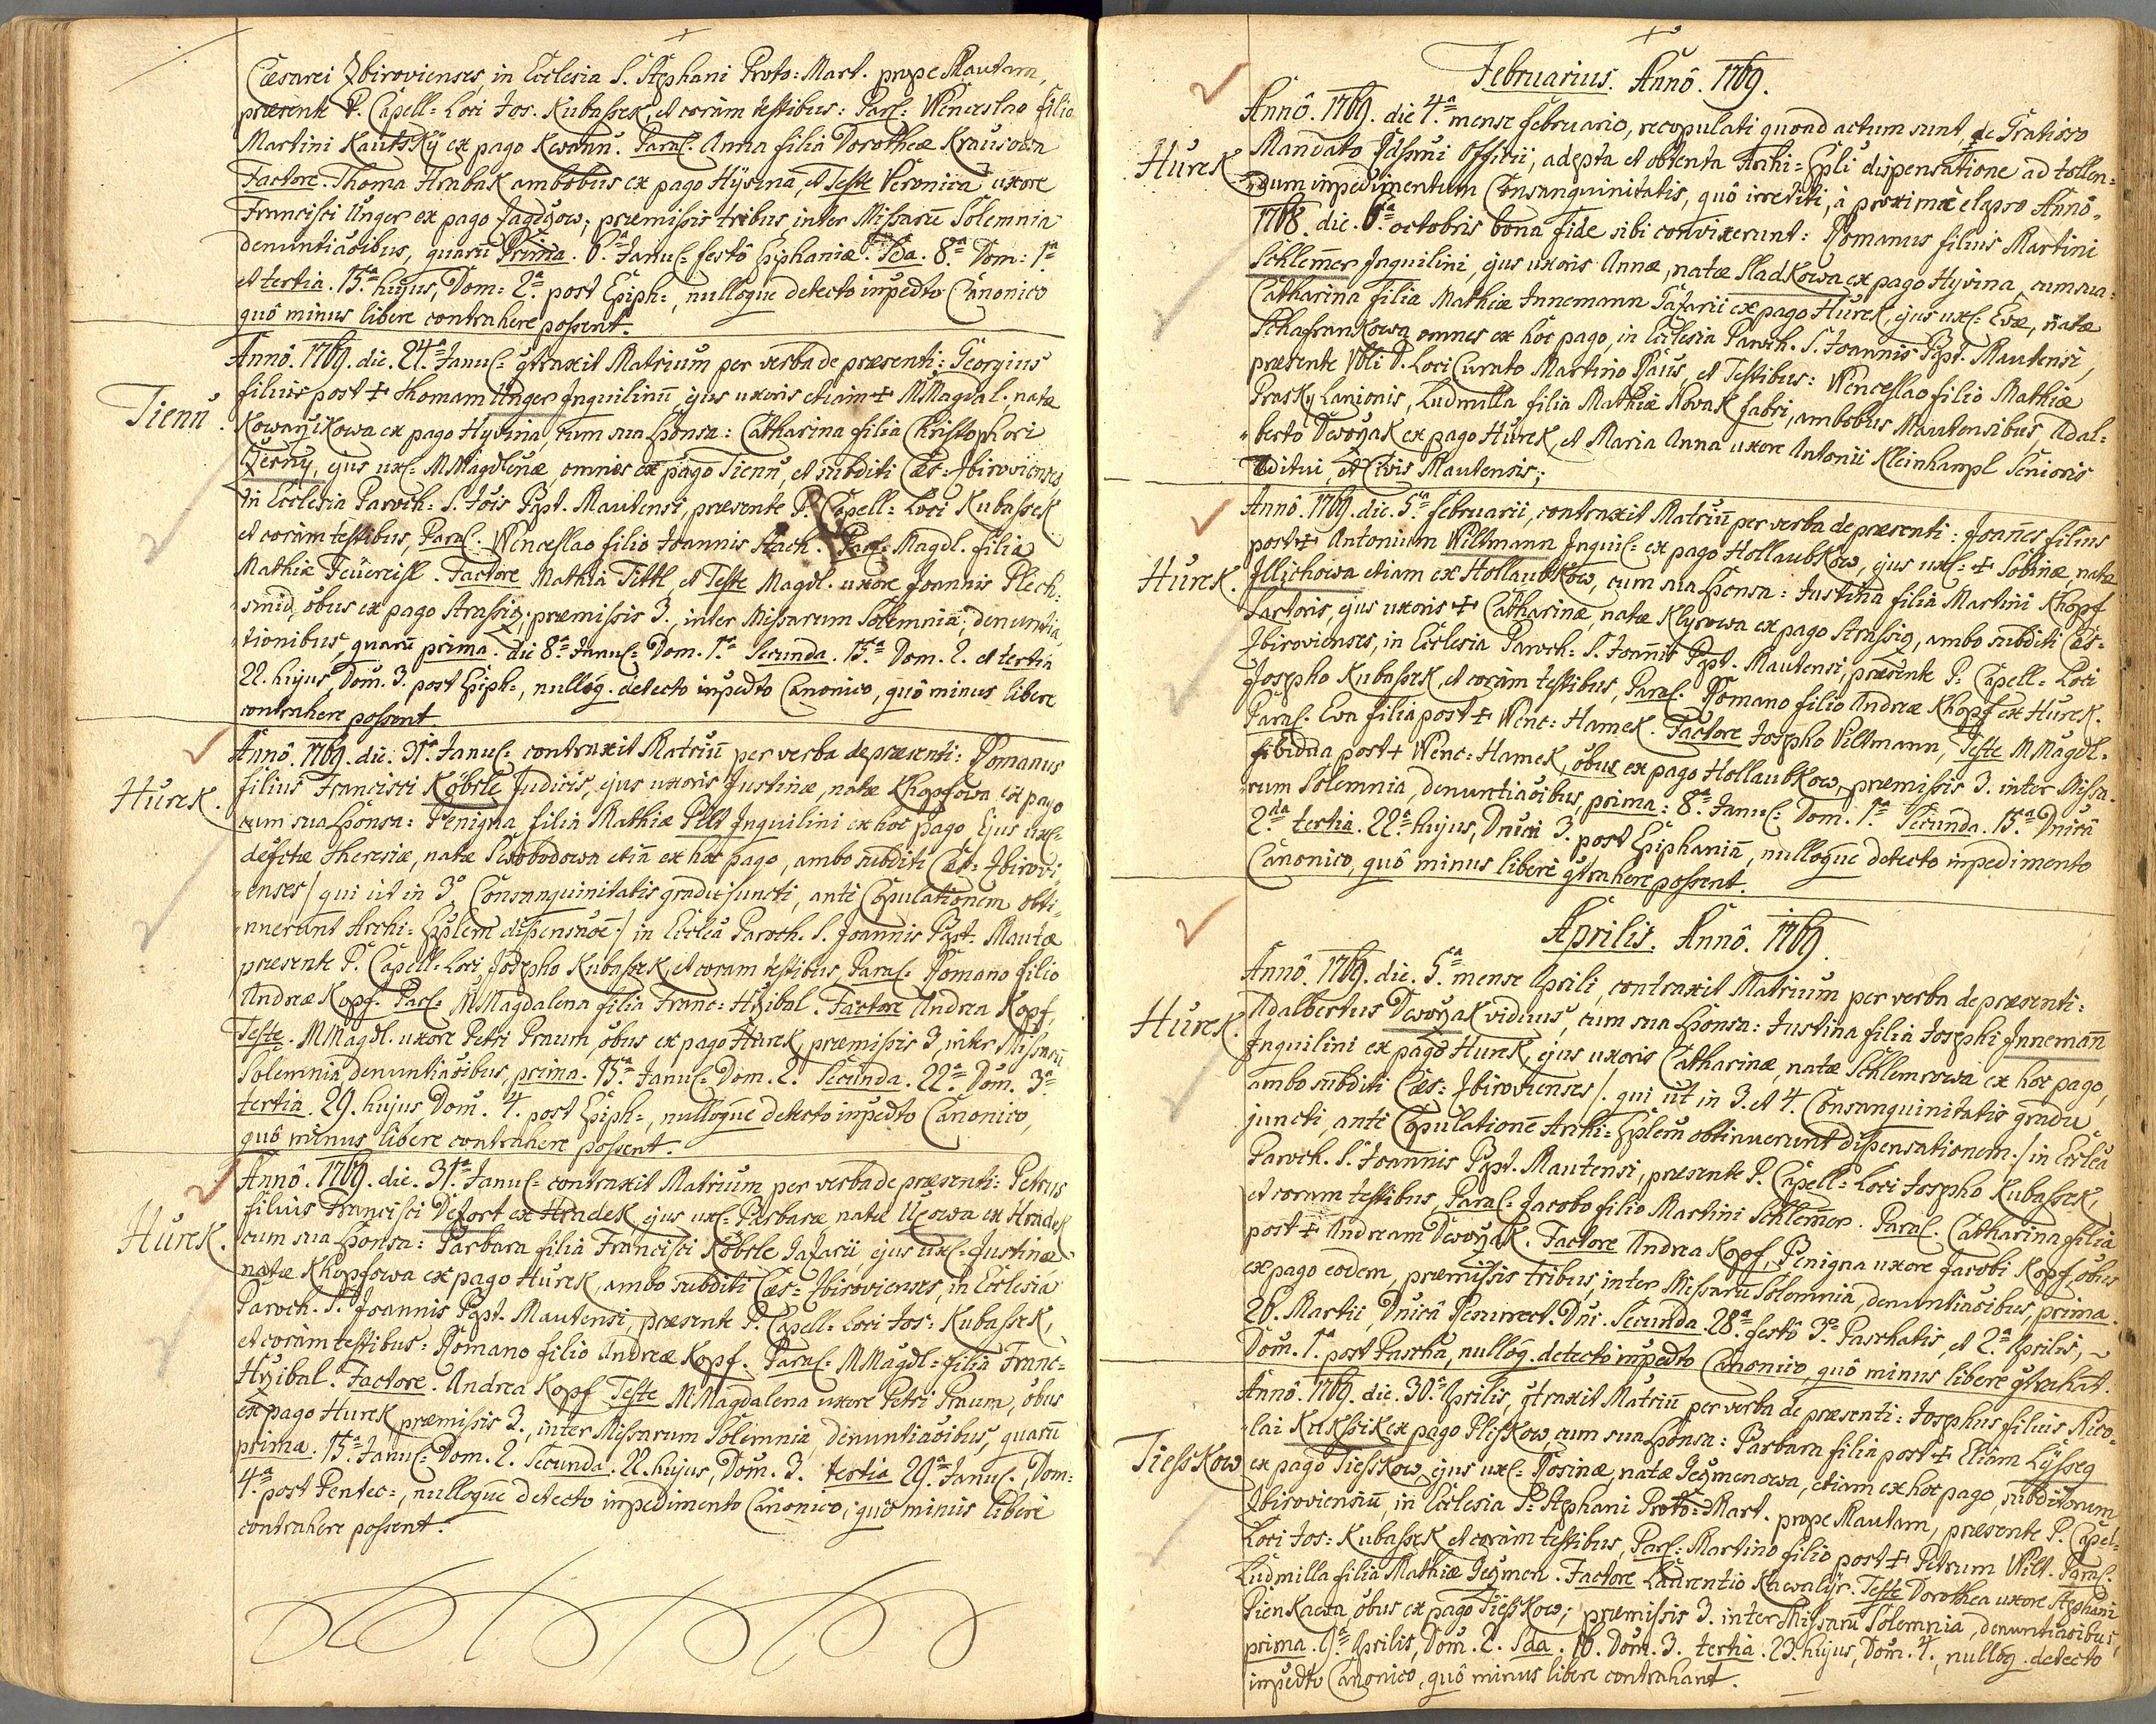 Cæsarei Zbirovienses, in Ecclesia S. Stephani Proto: Mart. prope Mautam,
præsente P. Capell: Loci Jos. Kubassek, et coràm testibus: Par: Wenceslao filio
Martini Kautsky ex pago Kwann. Par: Anna filia Dorotheæ Krausowa
Factore. Thoma Hrabak ambobus ex pago Hyvina, et Teste Veronica uxore
Francisci Unger ex pago Jagdzow; præmissis tribus, inter Missarũ Solemnia
denuntiãõibus, quarũ Prima. 6.ª Janu: festô Epiphaniæ. Sda. 8.ª Dom: 1.ª
et tertia. 15.ª hujus, Dom: 2.ª post Epiph:, nulloque detecto impedto Canonico
quô minus libere contrahere possent.
Annô. 1769. die. 24.ª Janu: qtraxit Matrium per verba de præsenti: Georgius
Tienũ.
filius post + Thomam Unger Inquilinũ, ejus uxoris etiam + MMagdal:, natæ
Kowarzikowa ex pago Hyvina, cum sua Sponsa: Catharina filia Christophori
Czerny, ejus ux: MMagdlenæ, omnes ex pago Tienũ, et subditi Cæs: Zbirovienses
in Ecclesia Paroch: S. Jois Bapt. Mautensi, præsente P. Capell: Loci Kubassek
et coràm testibus, Para: Wenceslao filio Joannis Stach. Par: Magdl. filia
Mathiæ Feüereisl. Factore Mathia Tittl, et Teste Magdl. uxore Joannis Plech:
smid, obus ex pago Strassig; præmissis 3., inter Missarum Solemnia, denuntia
tionibus, quarũ prima. die 8.ª Janu: Dom. 1.ª Secunda. 15.ª Dom. 2. et tertia
22. hujus, Dom. 3. post Epiph:, nulloq. detecto impedto Canonico, quô minus libere
contrahere possent.
Annô. 1769. die. 31.ª Janu: contraxit Matriũ per verba de præsenti: Romanus
Hurek.
filius Francisci Köbrle Judicis, ejus uxoris Justinæ, natæ Khopfowa ex pago
cum sua Sponsa: Benigna filia Mathiæ Pelt Inquilini ex hoc pago, Ejus ux:
defctæ Theresiæ, natæ Swobodowa etiã ex hoc pago, ambo subditi Cæs: Zbirovi
enses / qui ut in 3.º Consanguinitatis gradu juncti, ante Copulationem obti
nuerunt Archi: Eplem dispensnõẽ / in Ecclea Paroch. S. Joannis Bapt. Mautæ
præsente P. Capell: Loci Josepho Kubassek, et coram testibus, Para: Romano filio
Andreæ Kopf. Par: MMagdalena filia Franc: Hržibal. Factore Andrea Kopf,
Teste. MMagdl. uxore Petri Praum, obus ex pago Hurek, præmissis 3, inter Missarũ
Solemnia denuntiãõibus, prima. 15.ª Janu: Dom. 2. Secunda. 22.ª Dom. 3.ª
tertia. 29. hujus Dom. 4. post Epiph:, nulloque detecto impedto Canonico,
quô minus libere contrahere possent.
Annô. 1769. die. 31.ª Janu: contraxit Matrium per verba de præsenti: Petrus
Hurek.
filius Francisci Defort ex Hradek, ejus ux: Barbaræ natæ Uczowa ex Hradek
cum sua Sponsa: Barbara filia Francisci Köbrle Jajarii, ejus ux: Justinæ
natæ Khopfowa ex pago Hurek, ambo subditi Cæs: Zbirovienses, in Ecclesia
Paroch. S. Joannis Bapt. Mautensi, præsente P. Capell: Loci Jos: Kubassek,
et coràm testibus: Romano filio Andreæ Kopf. Para: MMagdl: filia Franc:
Hržibal. Factore. Andrea Kopf Teste MMagdalena uxore Petri Praum, obus
ex pago Hurek, præmissis 3., inter Missarum Solemnia, denuntiãõibus, quarũ
prima. 15.ª Janu: Dom. 2. Secunda. 22. hujus, Dom. 3. tertia 29.ª Janu: Dom:
4.ª post Pentec:, nulloque detecto impedimento Canonico, quô minus libere
contrahere possent.
Februarius. Annô. 1769.
Annô. 1769. die 4.ª mense februario, recopulati quoad actum sunt, de Gratioso
Hurek
Mandato Rdssmi Officii, adepta et obtenta Archi: Epli dispensatione ad tollen:
dum impedimentum Consanguinitatis, quô irretiti, à proximè elapso Annô.
1768. die. 6.ª octobris bona fide sibi convixerunt: Romanus filius Martini
Schlem̃er Inquilini, ejus uxoris Annæ, natæ Sladkowa ex pago Hyvina, cum sua:
Catharina filia Mathiæ Innemann Jajarii ex pago Hurek, ejus ux: Evæ, natæ
Schafrankowa, omnes ex hoc pago, in Ecclesia Paroch. S. Joannis Bapt. Mautensi,
præsente Vbli D. Loci Curato Martino Raus, et Testibus: Wenceslao filio Mathiæ
Prasky Lanionis, Ludmilla filia Mathiæ Nowak fabri, ambobus Mautensibus, Adal:
berto Dworzak ex pago Hurek, et Maria Anna uxore Antonii Kleinhampl Senioris
Æditui, et Civis Mautensis;
Annô. 1769. die. 5.ª februarii, contraxit Matriũ per verba de præsenti: Joañes filius
Hurek.
post + Antonium Wiltmann Inquil: ex pago Hollaubkow, ejus ux: + Sobinæ, natæ
Illichowa etiam ex Hollaubkow, cum sua Sponsa: Justina filia Martini Khopf
Sartoris, ejus uxoris + Catharinæ, natæ Klyrowa ex pago Strassig, ambo subditi Cæs:
Zbirovienses, in Ecclesia Paroch: S. Joannis Bapt. Mautensi, præsente P. Capell: Loci
Josepho Kubassek, et coràm testibus, Para: Romano filio Andreæ Khopf ex Hurek.
Para: Eva filia post + Wenc: Hamek. Factore Josepho Wiltmann, Teste MMagdl.
vidua post + Wenc: Hamek, obus ex pago Hollaubkow, præmissis 3. inter Missa
rum Solemnia, denuntiãõibus, prima: 8.ª Janu: Dom. 1.ª Secunda. 15.ª Dnicâ
2.da tertia. 22.ª hujus, Dnica 3. post Epiphaniã, nulloque detecto impedimento
Canonico, quô minus libere qtrahere possent.
Aprilis. Annô. 1769.
Annô. 1769. die. 5.ª mense Aprili, contraxit Matrium per verba de præsenti:
Hurek.
Adalbertus Dworzak viduus, cum sua Sponsa: Justina filia Josephi Innemañ
Inquilini ex pago Hurek, ejus uxoris Catharinæ, natæ Schlemrowa ex hoc pago,
ambo subditi Cæs: Zbirovienses /. qui ut in 3. et 4. Consanguinitatis gradu
juncti, ante Copulationẽ Archi: Eplem obtinuerunt dispensationem./ in Ecclea
Paroch. S. Joannis Bapt. Mautensi, præsente P. Capell: Loci Josepho Kubassek,
et coram testibus, Para: Jacobo filio Martini Schlem̃er. Para: Catharina filia
post + Andream Dworzak. Factore Andrea Kopf, Benigna uxore Jacobi Kopf, obus
ex pago eodem, præmissis tribus, inter Missarũ Solemnia, denuntiãõibus, prima.
26. Martii, Dnicâ Resurrect. Dni. Secunda. 28.ª festô 3.º Paschatis, et 2.ª Aprilis,
Dom. 1.ª post Pascha, nulloq. detecto impedto Canonico, quô minus libere qtrahãt.
Annô. 1769. die. 30.ª Aprilis, qtraxit Matriũ per verba de præsenti: Josephus filius Nico:
lai Kukssik ex pago Pliskow, cum sua Sponsa: Barbara filia post + Eliam Lÿsseg
Tiesskow
ex pago Tiesskow, ejus ux: Rosinæ, natæ Jeczmenowa, etiam ex hoc pago, subditorum
Zbiroviensiũ, in Ecclesia S. Stephani Proto: Mart. prope Mautam, præsente P. Capel:
Loci Jos: Kubassek et coràm testibus, Par: Martino filio post + Petrum Wilt. Para:
Ludmilla filia Mathiæ Jeczmen. Factore Laurentio Kawalyr. Teste Dorothea uxore Stephani
Pienkawa obus ex pago Tiesskow; præmissis 3. inter Missarũ Solemnia, denuntiãõibus,
prima. 9.ª Aprilis, Dom. 2. Sda. 16. Dom. 3. tertia. 23. hujus, Dom. 4., nulloq. detecto
impedto Canonico, quô minus libere contrahant.